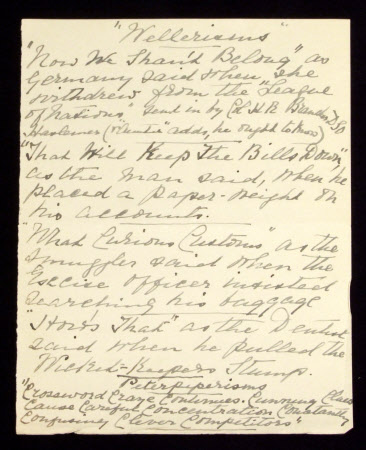 "Wellerisms"
"Now We Shan't Belong" as
Germany said when she
withdrew from the "League
of Nations" sent in by Col H. R. DSO
Haslemere adds, he ought to know
"That Will Keep The Bills Down",
as the man said, when he
placed a paper-weight on
his accounts.
"What Curious Customs" as the
smuggler said when the
Excise officer insisted
searching his baggage
"How's That" as the Dentist
said when he pulled the
Wicket-Keepers Stump.
Peterpiperisms
"Crossword Craze Continues. Cunning Clues
Cause Careful Concentration Constantly
Confusing Clever Competitors"